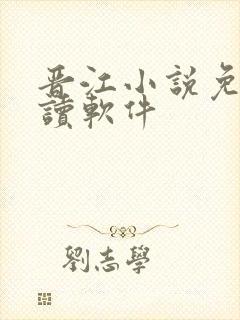 晋江小说免
讀軟件
劉志學